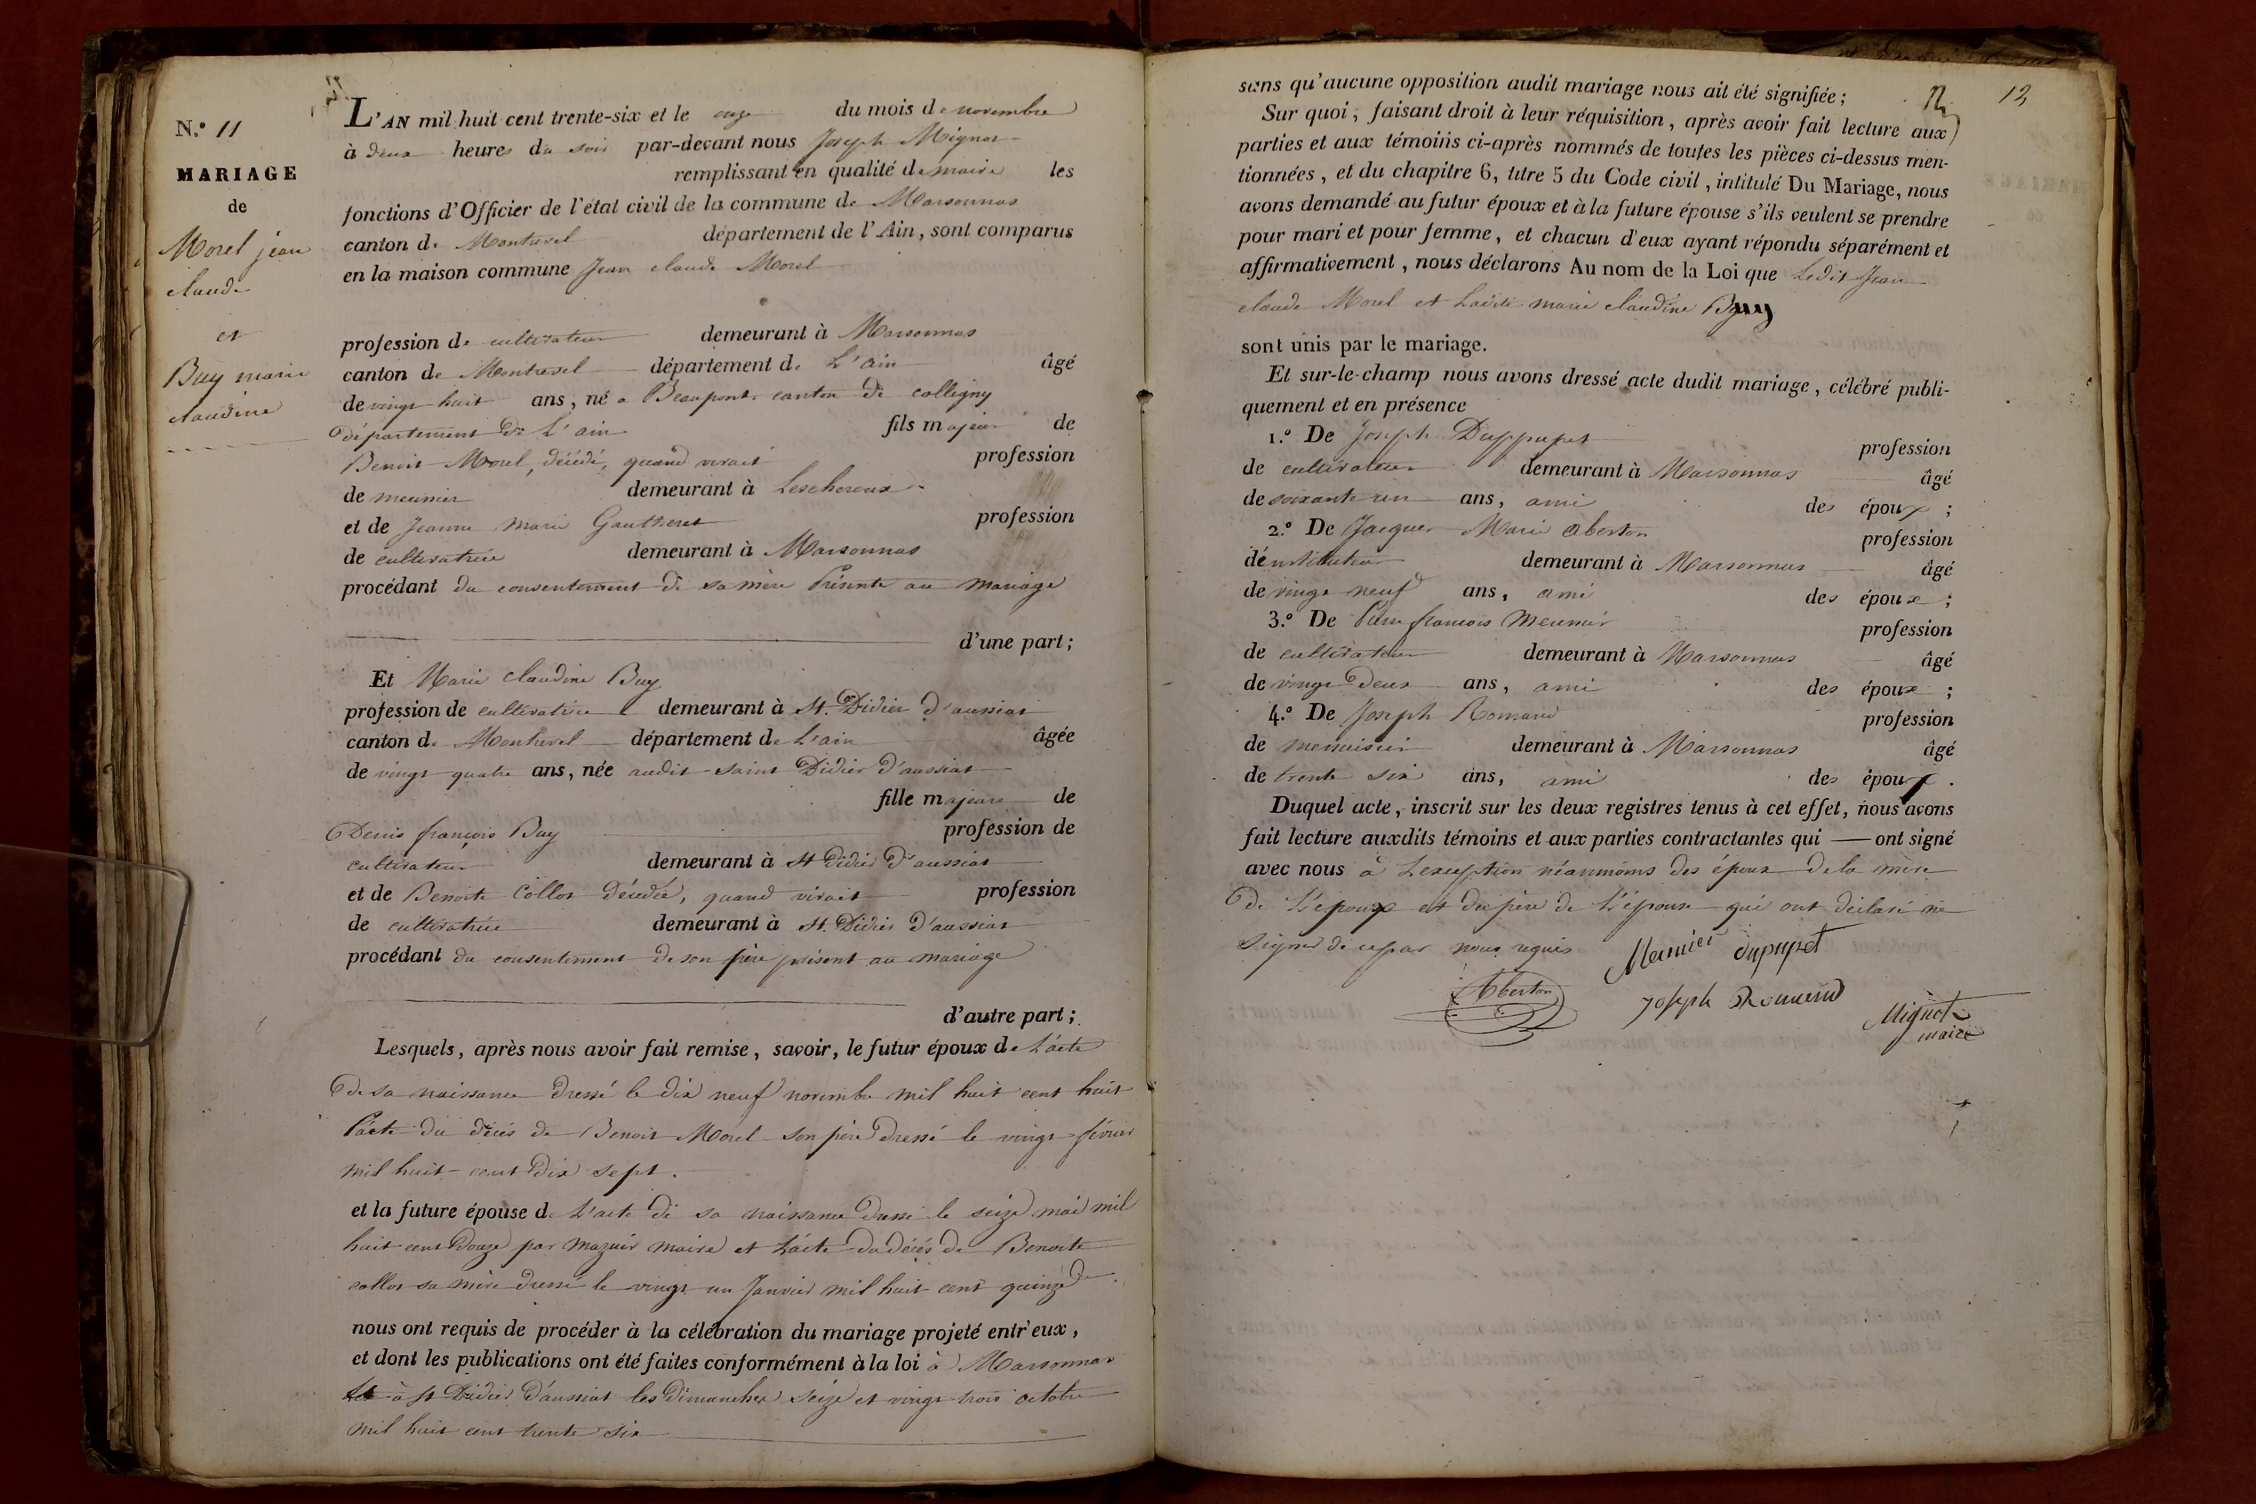 N.º 11
MARIAGE
de
Morel jean
claude
et
Buy marie
claudine
L'AN mil huit cent trente-six et le onze du mois de novembre
à deux heures du soir par-devant nous Joseph Mignot
remplissant en qualité de maire les
fonctions d'Officier de l'état civil de la commune de Marsonnas
canton de Montrevel département de l'Ain, sont comparus
en la maison commune Jean claude Morel
profession de cultivateur demeurant à Marsonnas
canton de Montrevel département de L'ain âgé
de vingt huit ans, né a Beaupont canton de colligny
département de L'ain fils majeur de
Benoit Morel, décédé, quand vivait profession
de meunier demeurant à Lescheroux
et de Jeanne Marie Gautheret profession
de cultivatrice demeurant à Marsonnas
procédant du consentement de sa mère Présente au mariage
d'une part;
Et Marie Claudine Buy
profession de cultivatrice demeurant à St. Didier d'aussiat
canton de Montrevel département de L'ain âgée
de vingt quatre ans, née audit saint Didier d'aussiat
fille majeure de
Denis françois Buy profession de
cultivateur demeurant à St Didier d'aussiat
et de Benoite Collot décédée, quand vivait profession
de cultivatrice demeurant à St. Didier d'aussiat
procédant du consentement de son père présent au mariage
d'autre part;
Lesquels, après nous avoir fait remise, savoir, le futur époux de L'acte
de sa naissance dressé le dix neuf novembre mil huit cent huit
l'acte du décès de Benoit Morel son père dressé le vingt février
mil huit cent dix sept.
et la future épouse de L'acte de sa naissance dressé le seize mai mil
huit cent douze par mazuir maire et L'acte du décès de Benoite
collot sa mère dressé le vingt un Janvier mil huit cent quinze
nous ont requis de procéder à la célébration du mariage projeté entr'eux,
et dont les publications ont été faites conformément à la loi à Marsonnas
et à St Didier d'aussiat les dimanches seize et vingt trois octobre
mil huit cent trente six
12
sans qu'aucune opposition audit mariage nous ait été signifiée;
Sur quoi, faisant droit à leur réquisition, après avoir fait lecture aux
parties et aux témoins ci-après nommés de toutes les pièces ci-dessus men-
tionnées, et du chapitre 6, titre 5 du Code civil, intitulé Du Mariage, nous
avons demandé au futur époux et à la future épouse s'ils veulent se prendre
pour mari et pour femme, et chacun d'eux ayant répondu séparément et
affirmativement, nous déclarons Au nom de la Loi que Ledit Jean
claude Morel et Ladite marie claudine Buy
sont unis par le mariage.
Et sur-le-champ nous avons dressé acte dudit mariage, célébré publi-
quement et en présence
1.º De Joseph Duppupet profession
de cultivateur demeurant à Marsonnas âgé
de soixante un ans, ami des époux;
2.º De Jacques Marie Aberton profession
d'instituteur demeurant à Marsonnas âgé
de vingt neuf ans, ami des époux;
3.º De Pierre françois Meunier profession
de cultivateur demeurant à Marsonnas âgé
de vingt deux ans, ami des époux;
4.º De Joseph Romand profession
de menuisier demeurant à Marsonnas âgé
de trente six ans, ami des époux.
Duquel acte, inscrit sur les deux registres tenus à cet effet, nous avons
fait lecture auxdits témoins et aux parties contractantes qui ont signé
avec nous à L'exception néanmoins des époux de la mère
de L'époux et du père de L'épouse qui ont déclaré ne
signer de ce par nous requis
Meunier dupupet
Aberton Joseph Romand
Mignot
maire